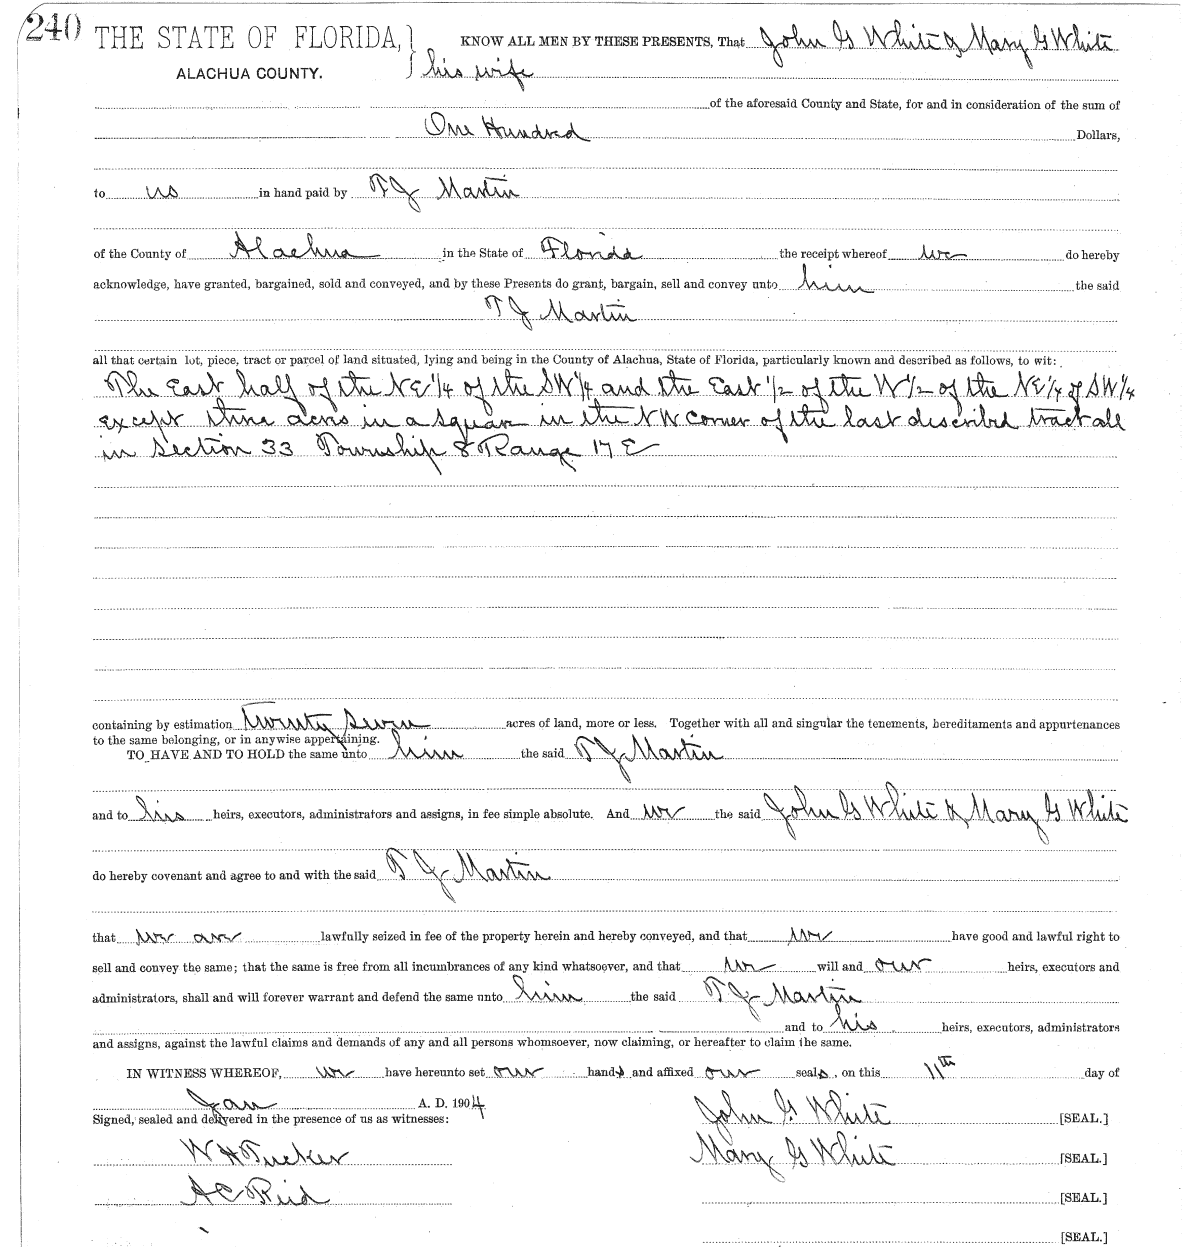 240 THE STATE OF FLORIDA, } KNOW ALL MEN BY THESE PRESENTS, That John G White & Mary G White
ALACHUA COUNTY. } his wife
of the aforesaid County and State, for and in consideration of the sum of
One Hundred Dollars,
to us in hand paid by T J Martin
of the County of Alachua in the State of Florida the receipt whereof we do hereby
acknowledge, have granted, bargained, sold and conveyed, and by these Presents do grant, bargain, sell and convey unto him the said
T J Martin
all that certain lot, piece, tract or parcel of land situated, lying and being in the County of Alachua, State of Florida, particularly known and described as follows, to wit:
The East half of the NE 1/4 of the SW 1/4 and the East 1/2 of the W 1/2 of the NE 1/4 of SW 1/4
except three acres in a square in the NW corner of the last described tract all
in Section 33 Township 8 Range 17 E
containing by estimation Twenty Seven acres of land, more or less. Together with all and singular the tenements, hereditaments and appurtenances
to the same belonging, or in anywise appertaining.
TO HAVE AND TO HOLD the same unto him the said T J Martin
and to his heirs, executors, administrators and assigns, in fee simple absolute. And we the said John G White & Mary G White
do hereby covenant and agree to and with the said T J Martin
that we are lawfully seized in fee of the property herein and hereby conveyed, and that we have good and lawful right to
sell and convey the same; that the same is free from all incumbrances of any kind whatsoever, and that we will and our heirs, executors and
administrators, shall and will forever warrant and defend the same unto him the said T J Martin
and to his heirs, executors, administrators
and assigns, against the lawful claims and demands of any and all persons whomsoever, now claiming, or hereafter to claim the same.
IN WITNESS WHEREOF, we have hereunto set our hands and affixed our seals, on this 11th day of
Jan A. D. 1904 John G. White [SEAL.]
Signed, sealed and delivered in the presence of us as witnesses:
W H Tucker Mary G White [SEAL.]
A C Reid [SEAL.]
[SEAL.]